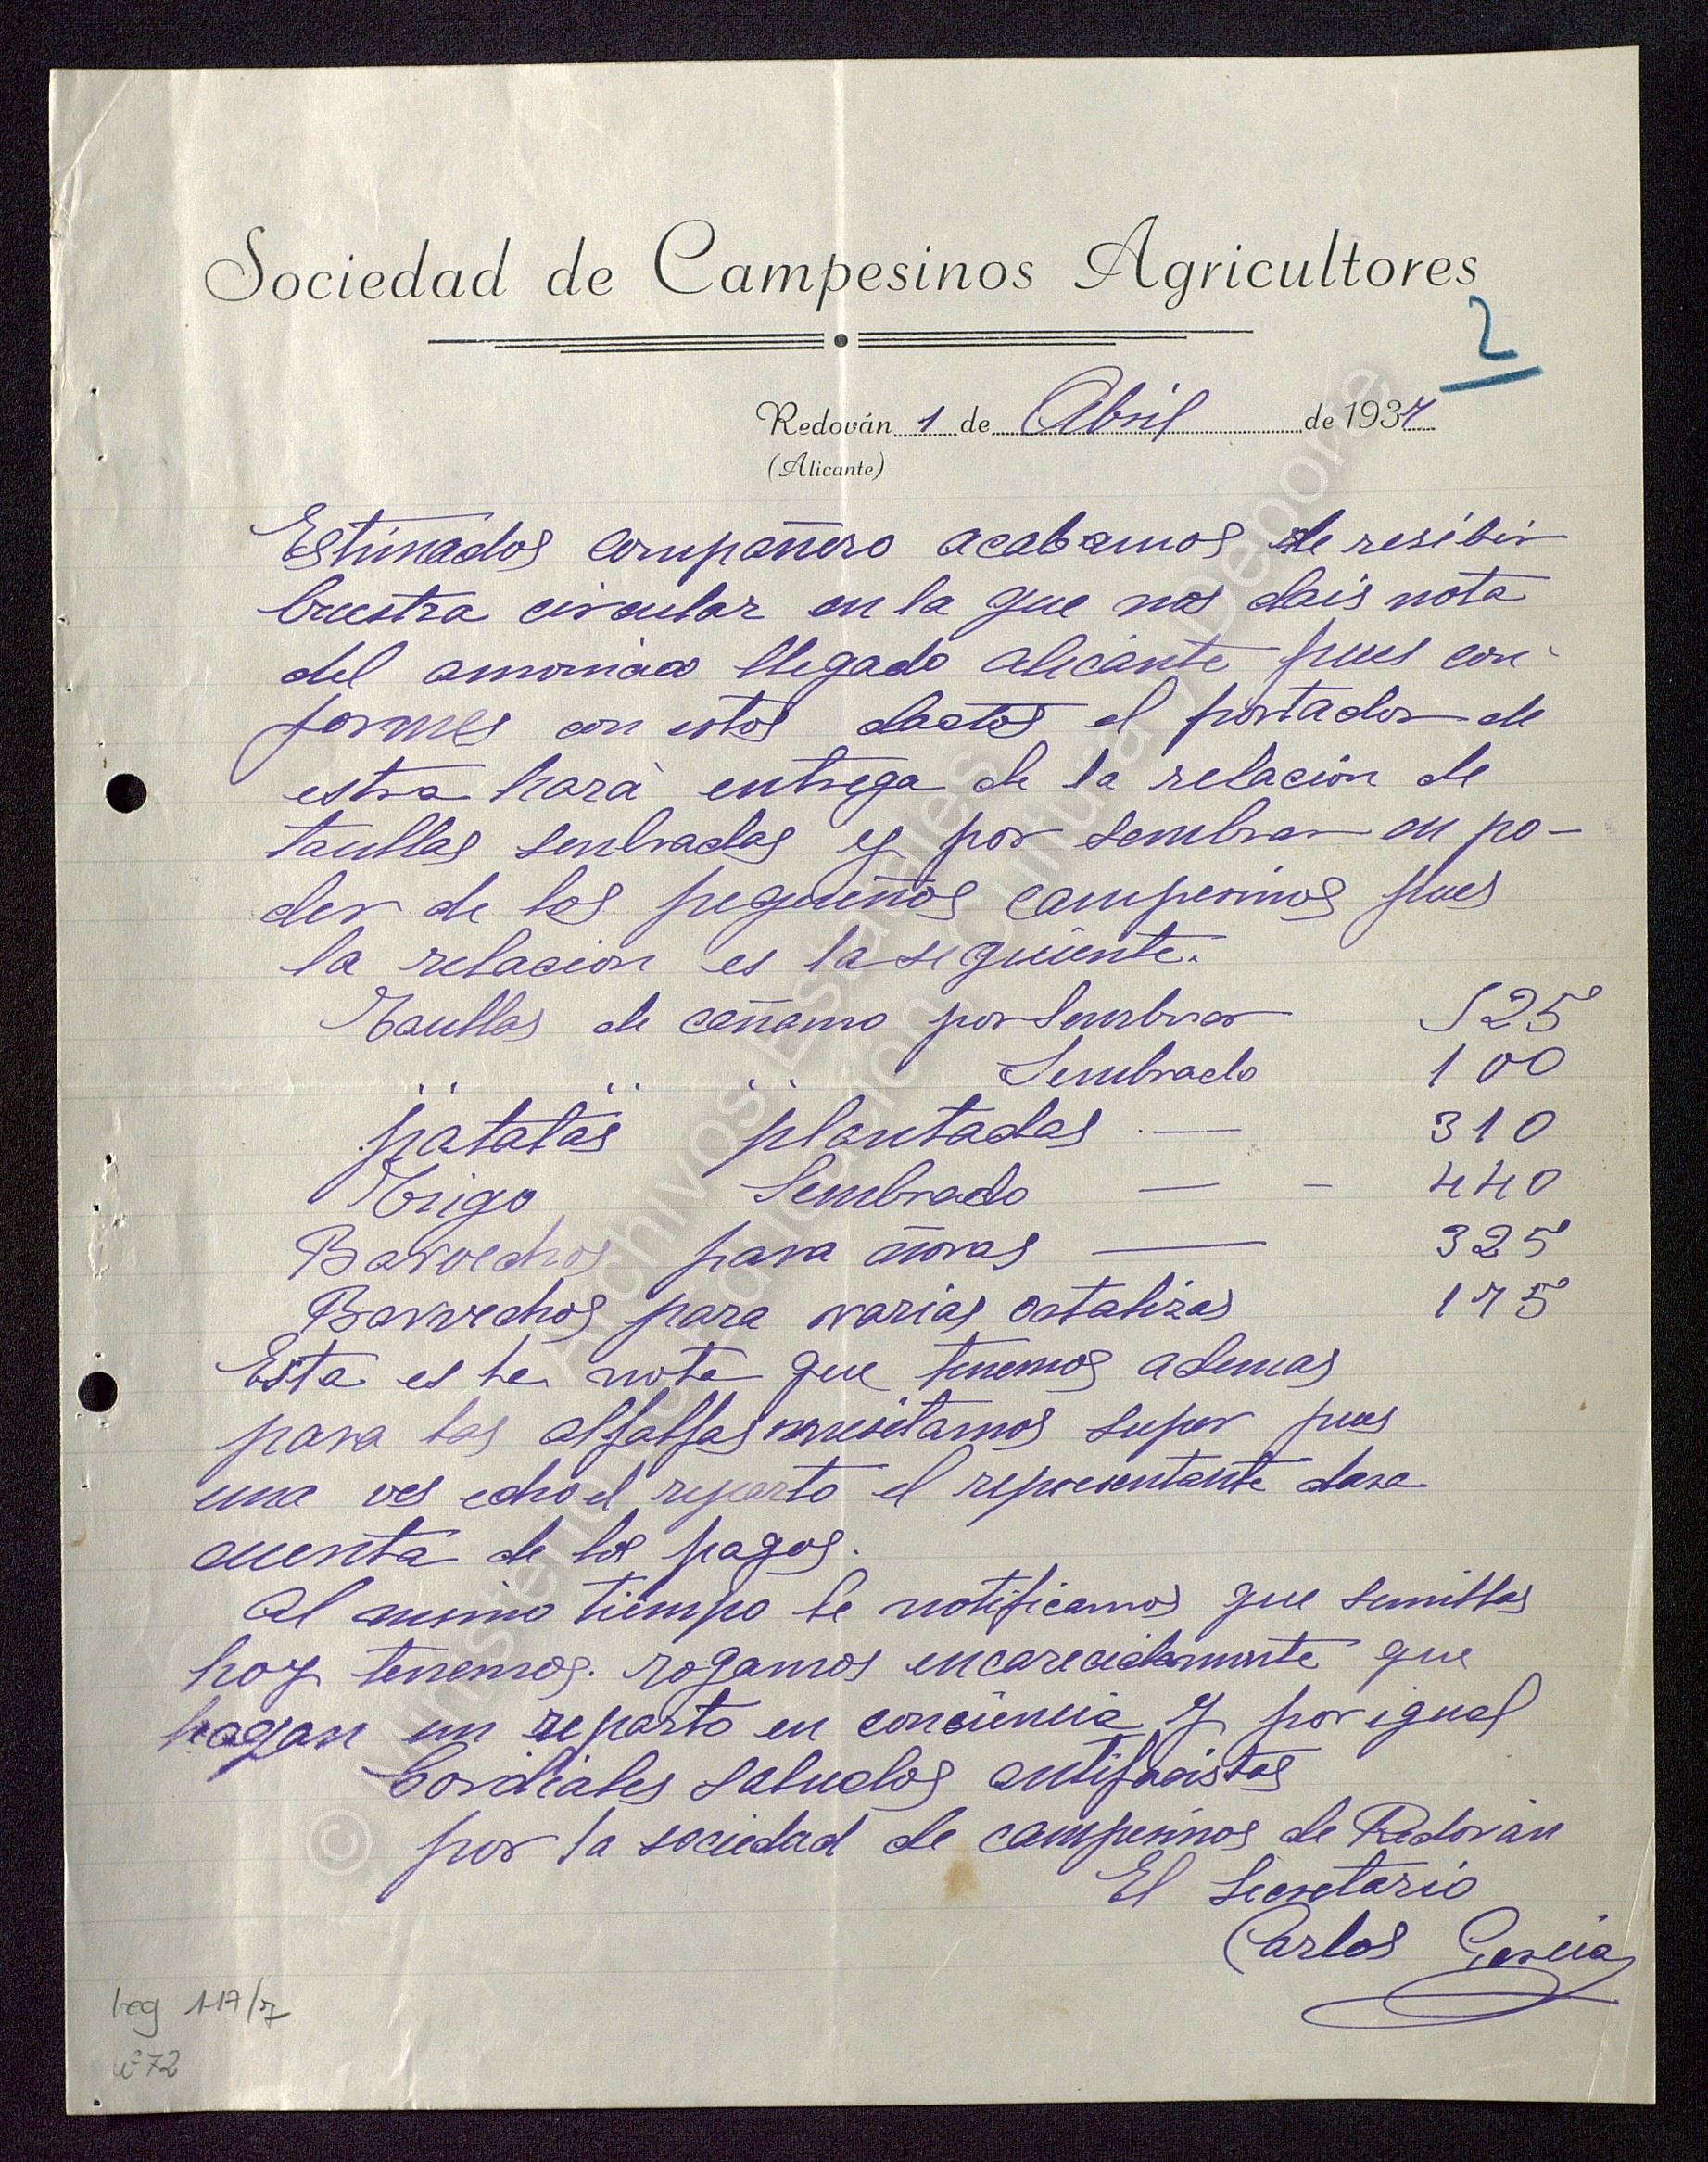 Sociedad de Campesinos Agricultores
2
Redován 1 de Abril de 1937
(Alicante)
Estimados compañero acabamos de resibir
buestra circular en la que nos dais nota
del amoniaco llegado alicante pues con-
formes con estos dactos el portador de
estra hará entrega de la relacion de
taullas senbradas y por sembrar en po-
der de los pequeños campesinos pues
la relacion es la siguiente.
Taullas de cañamo por Sembrar 525
" " " Sembrado 100
patatas plantadas — 310
Trigo Sembrado — - 440
Barvechos para ñoras — 325
Barvechos para varias ortalizas 175
Esta es la nota que tenemos ademas
para las alfalfas nesesitamos super pues
una ves echo el reparto el representante dara
cuenta de los pagos.
Al mismo tiempo le notificamos que semillas
hoy tenemos. rogamos encarecidamente que
hagan un reparto en conciencia y por igual
Cordiales saludos antifacistas
por la sociedad de campesinos de Redován
El Secretario
Carlos Garcia
leg 117/7
nº 72
© Ministerio de Educación, Cultura y Deporte
Archivos Estatales